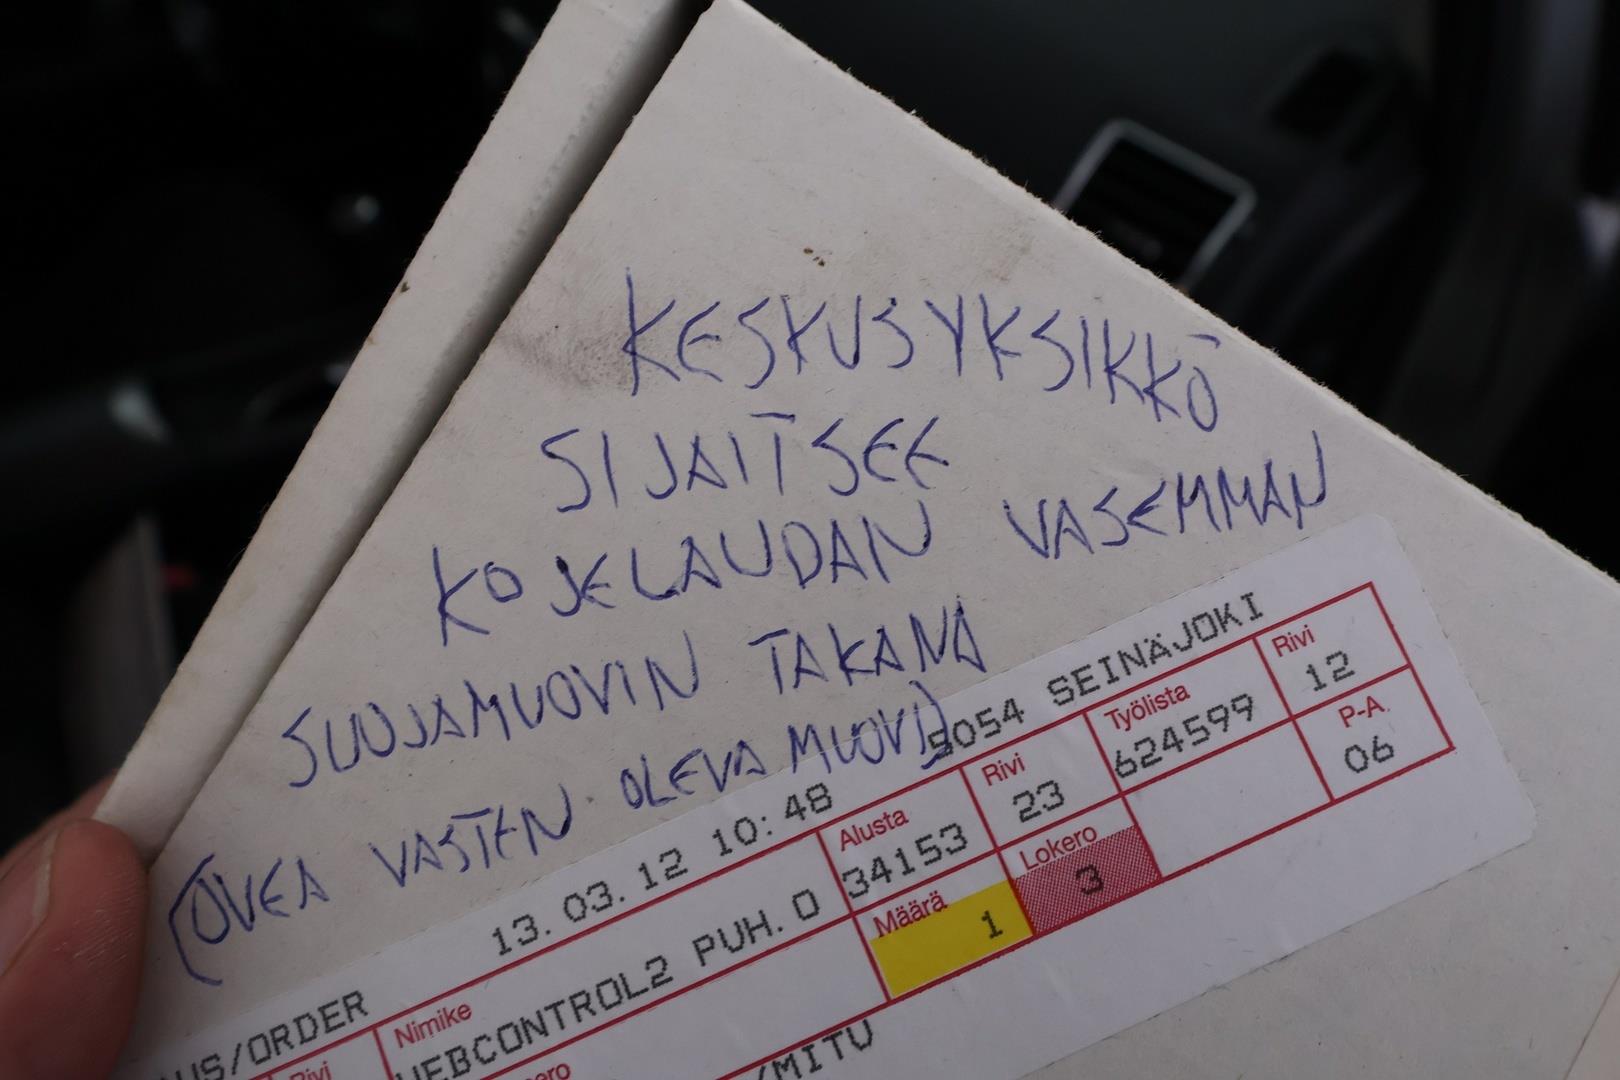 KESKUSYKSIKKÖ
SIJAITSEE
KOJELAUDAN VASEMMAN
SUOJAMUOVIN TAKANA
(OVEA VASTEN OLEVA MUOVI)
13.03.12 10:48 SEINÄJOKI
Alusta Rivi Työlista Rivi
34153 23 624599 12
/ORDER Nimike Määrä Lokero P-A.
PUH. 0 1 3 06
Rivi
/MITU